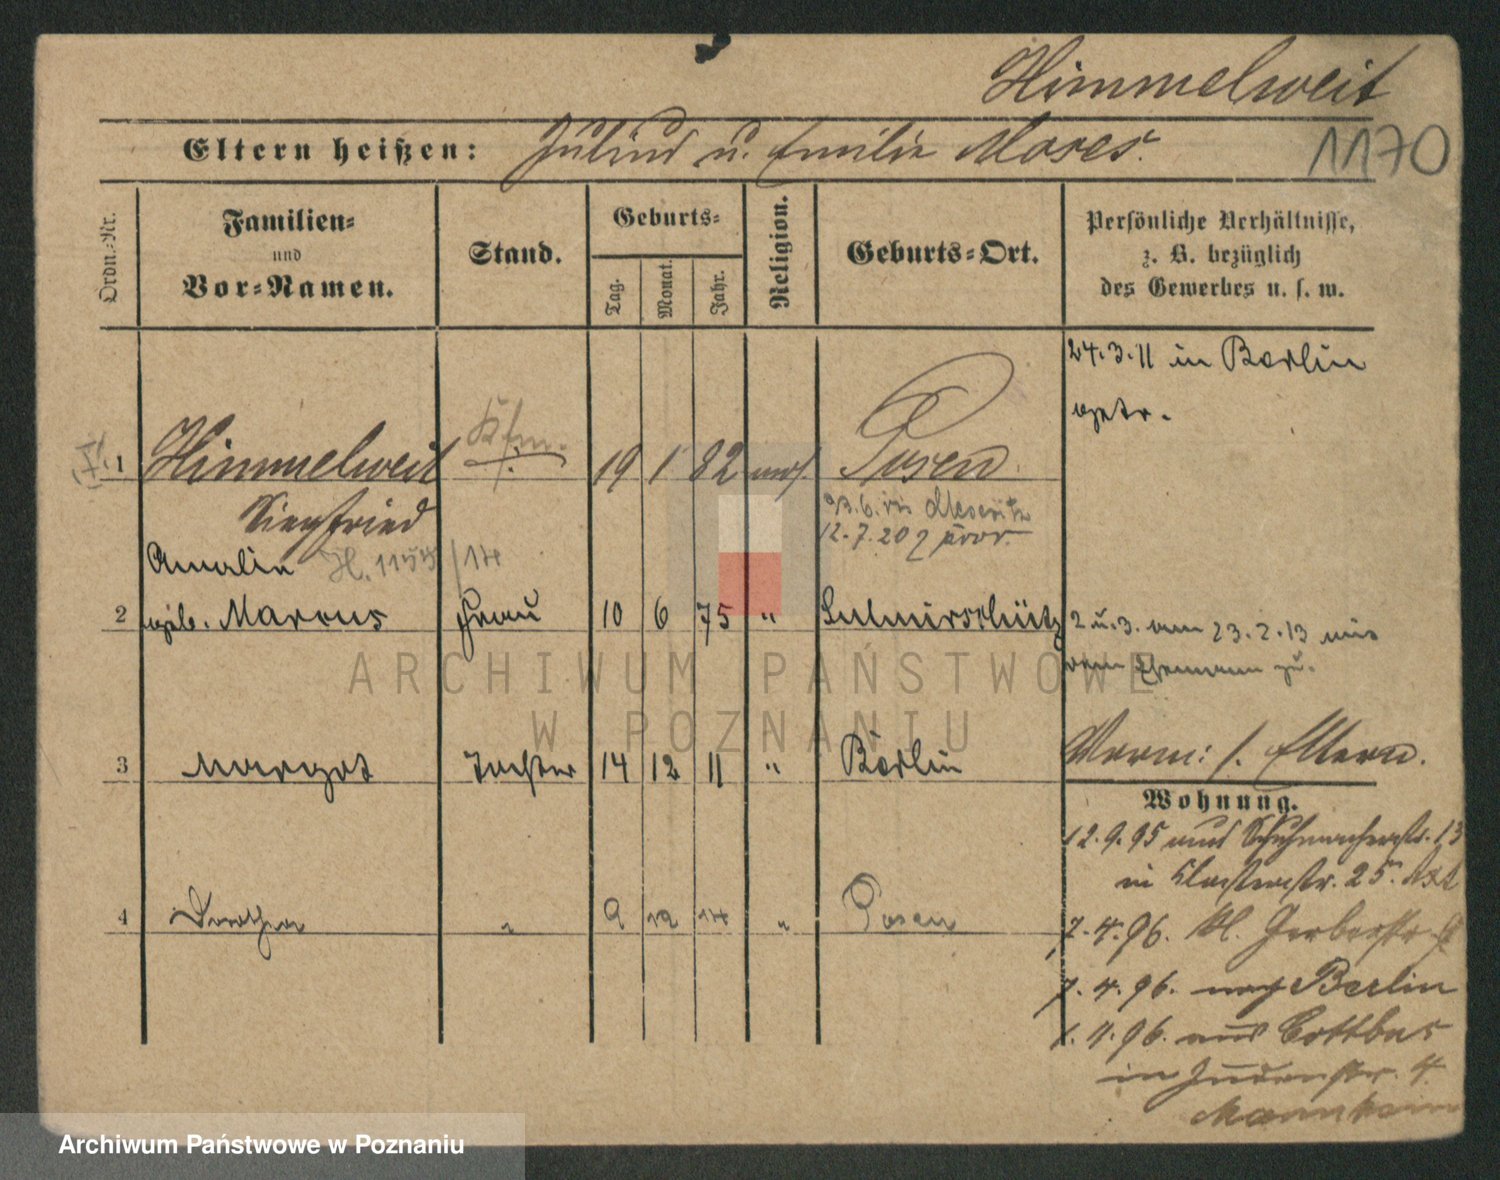 Himmelweit
1170
Eltern heißen: Julius u. Emilie Moses.
Ordn.-Nr.
Familien-
und
Vor-Namen.
Stand.
Geburts-
Tag.
Monat.
Jahr.
Religion.
Geburts-Ort.
Persönliche Verhältnisse,
z. B. bezüglich
des Gewerbes u. s. w.
24.3.11 in Berlin
getr.
1 Himmelweit Kfm. 19 1 82 mos. Posen
Siegfried
12.7.20
Amalie H. 1155/14
2 geb. Marcus Frau 10 6 75 " Sulmirschütz
2 u. 3. am 23.2.13 mit
dem Ehemann zu.
3 Margot Tochter 14 12 11 " Berlin
Verm: s. Eltern.
Wohnung.
12.9.95 aus Schuhmacherstr. 13
in Klosterstr. 25.
4 Dorothea " 9 12 14 " Posen
7.4.96. Kl. Gerberstr. 9
7.4.96. nach Berlin
1.4.96. aus Cottbus
in Judenstr. 4.
Mannheim
ARCHIWUM PAŃSTWOWE
W POZNANIU
Archiwum Państwowe w Poznaniu